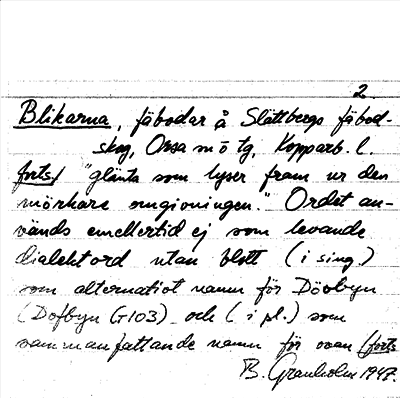 2
Blikarna, fäbodar å Slättbergs fäbod-
skog, Orsa sn ö tg, Kopparb. l.
forts/ "glänta som lyser fram ur den
mörkare omgivningen." Ordet an-
vänds emellertid ej som levande
dialektord utan blott (i sing.)
som alternativt namn för Dövbyn
(Dofbyn G103) och (i pl.) som
sammanfattande namn för ovan (forts
B. Granholm 1947.